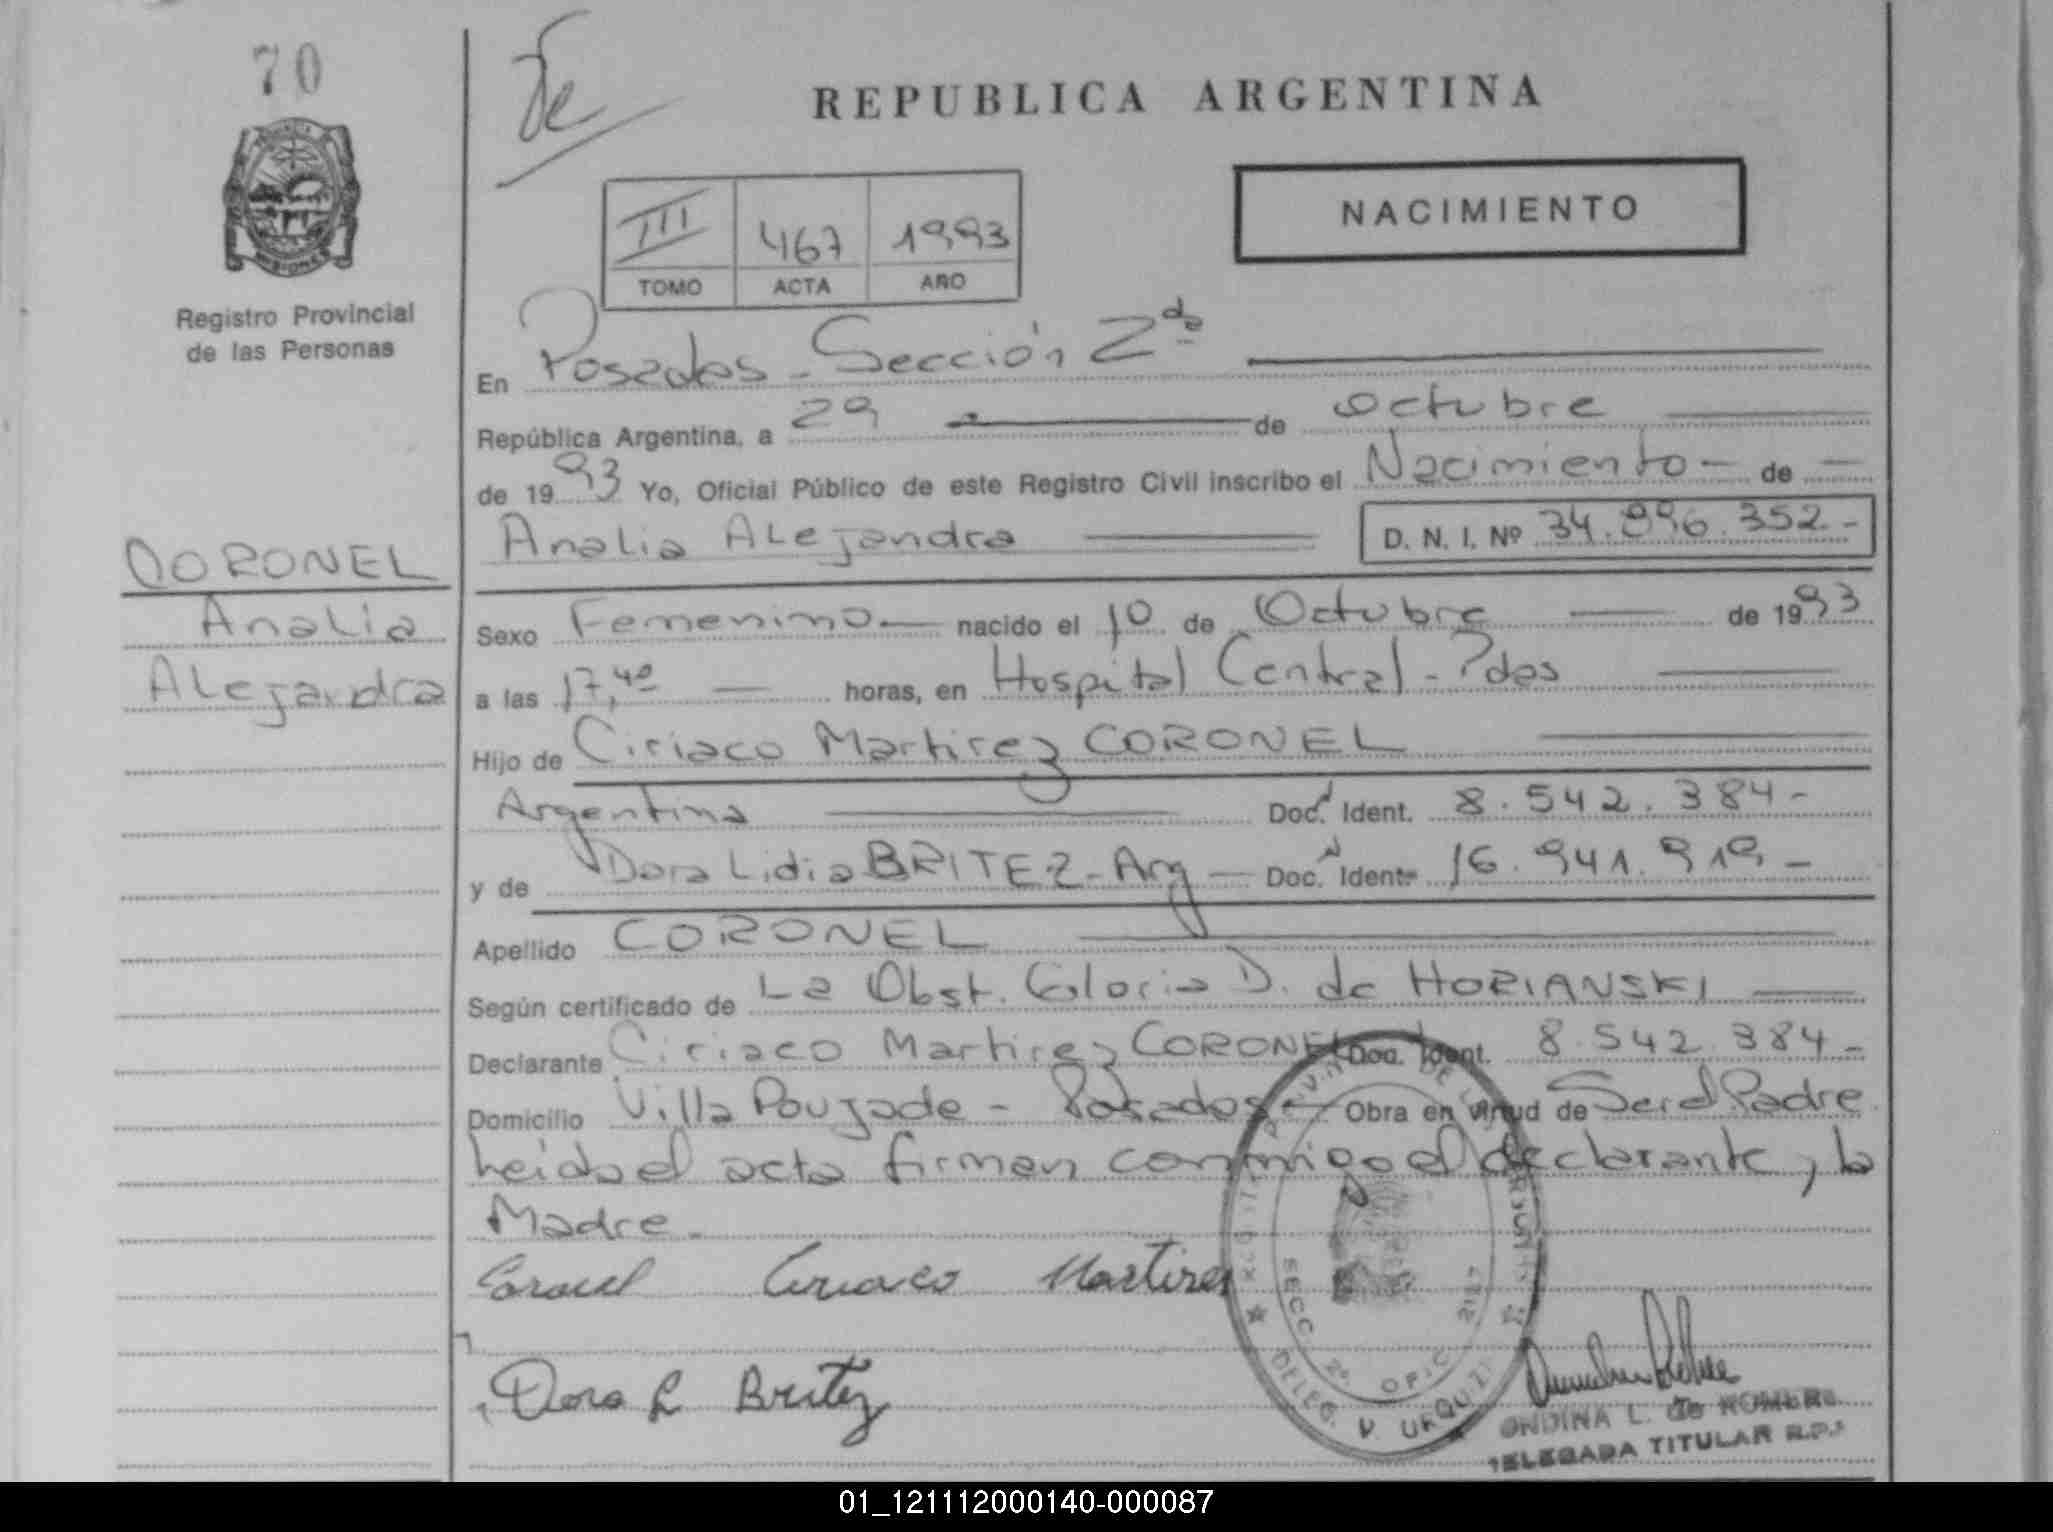 70
REPUBLICA ARGENTINA
NACIMIENTO
III 467 1993
TOMO ACTA AÑO
MISIONES
Registro Provincial
de las Personas
En Posadas - Sección 2da
República Argentina, a 29 de Octubre
de 1993 Yo, Oficial Público de este Registro Civil inscribo el Nacimiento - de
Analia Alejandra D. N. I. Nº 34.896.352-
CORONEL
Analia
Alejandra
Sexo Femenino nacido el 10 de Octubre de 1993
a las 17,40 horas, en Hospital Central - Pdas
Hijo de Ciriaco Martirez CORONEL
Argentina Doc. Ident. 8.542.384-
y de Dora Lidia BRITEZ - Arg Doc. Ident. 16.941.919-
Apellido CORONEL
Según certificado de La Obst. Gloria D. de HORIANSKI
Declarante Ciriaco Martirez CORONEL Doc. Ident. 8.542.384-
Domicilio Villa Poujade - Posadas - Obra en virtud de Ser el Padre
Leida el acta firman conmigo el declarante, la
Madre.
Coronel Ciriaco Martires
Dora L Britez
SECC. 2ª. OFIC.
DELEG. V. URQUIZA
ONDINA L. de ROMERO
DELEGADA TITULAR R.P.
01_121112000140-000087